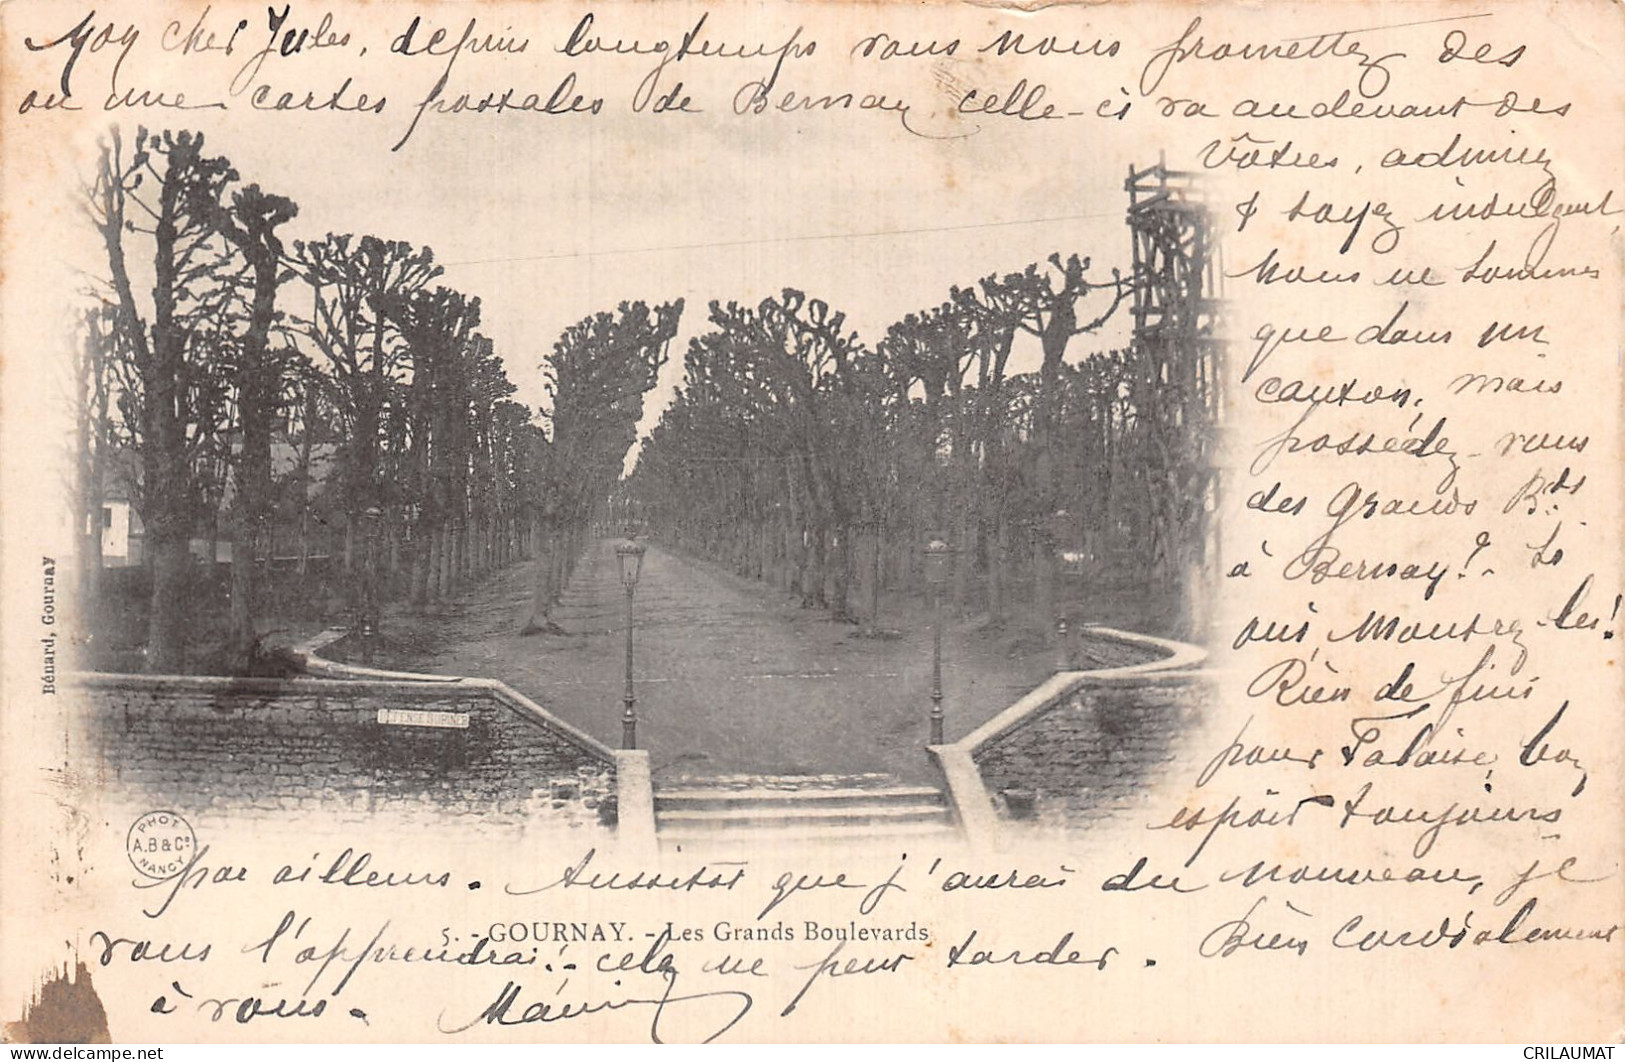 Mon cher Jules, depuis longtemps vous nous promettez des
ou une cartes postales de Bernay celle-ci va au devant des
vôtres, admirez
& soyez indulgent,
Nous ne sommes
que dans un
canton, mais
possédez-vous
des Grands Bds
à Bernay? - Si
oui, Montrez-les!
Rien de fini
pour Falaise, bon
espoir toujours
par ailleurs. Aussitôt que j'aurai du nouveau, je
vous l'apprendrai! - cela ne peut tarder. Bien Cordialement
à vous.
5. - GOURNAY. - Les Grands Boulevards
Bénard, Gournay
PHOT
A.B & Cie
NANCY
DEFENSE D'URINER
CRILAUMAT